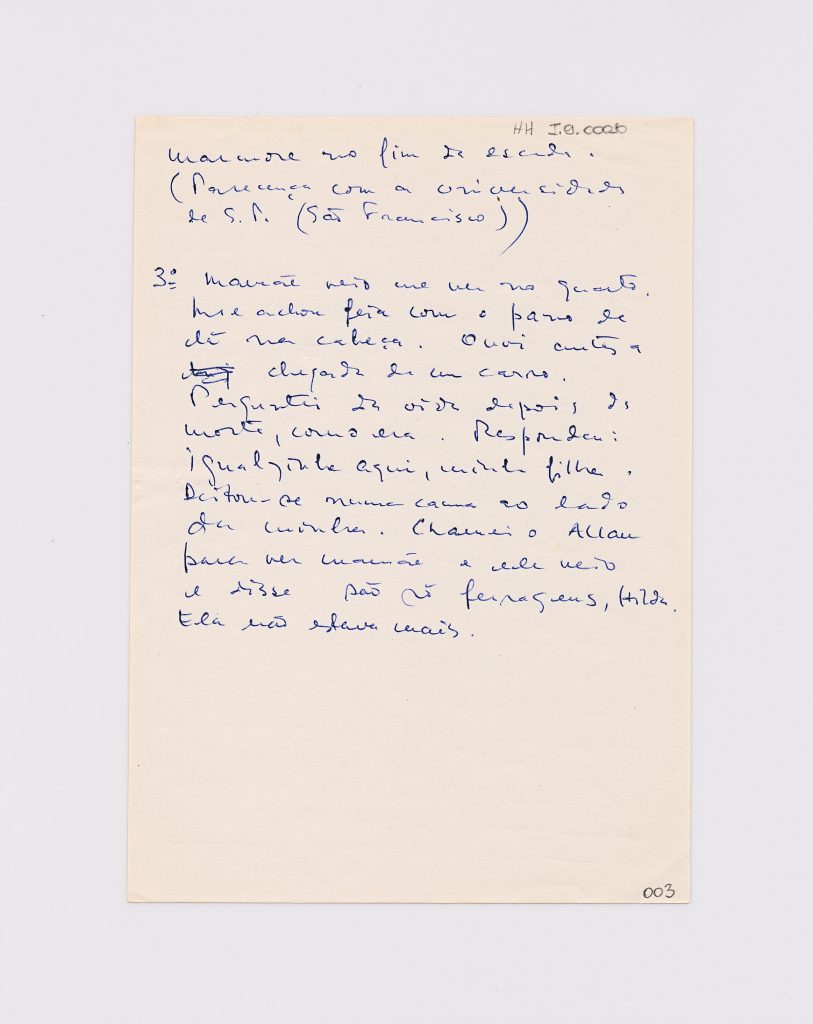 HH I.8.0026
marmore no fim da escada.
(Parecença com a universidade
de S.P. (São Francisco))
3º mamãe veio me ver no quarto.
me achou feia com o pano de
lã na cabeça. Ouvi antes a
chegada de um carro.
Perguntei da vida depois da
morte, como era. Respondeu:
igualzinha aqui, minha filha.
Deitou-se numa cama ao lado
da minha. Chamei o Allan
para ver mamãe e ele veio
e disse são só ferragens, Hilda.
Ela não estava mais.
003